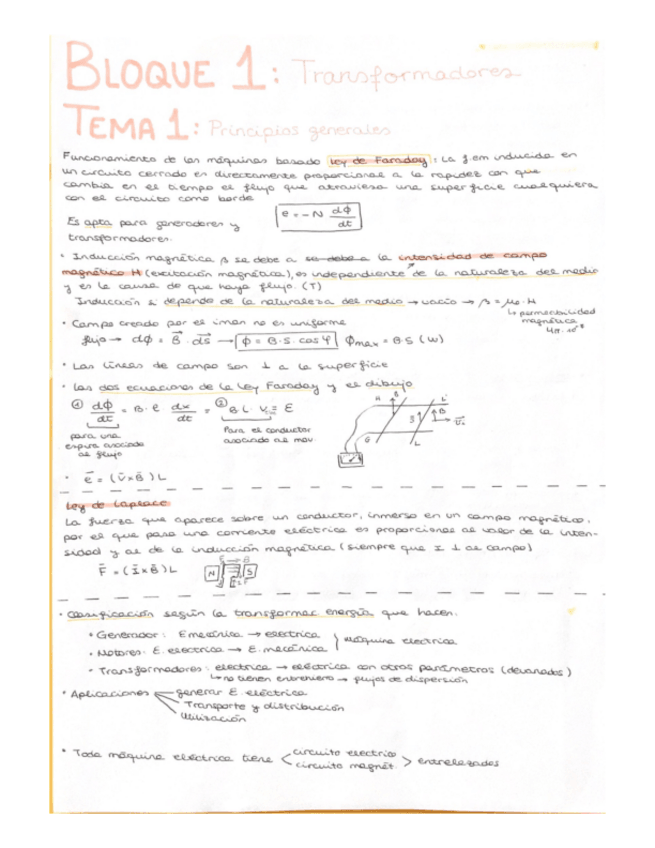 BLOQUE 1: Transformadores
TEMA 1: Principios generales
Funcionamiento de las máquinas basado ley de Faraday: La f.em inducida en
un circuito cerrado es directamente proporcional a la rapidez con que
cambia en el tiempo el flujo que atraviesa una superficie cualquiera
con el circuito como borde
Es apta para generadores y
transformadores.
e = - N dϕ/dt
• Inducción magnética β se debe a se debe a la intensidad de campo
magnético H (excitación magnética), es independiente de la naturaleza del medio
y es la causa de que haya flujo. (T)
Inducción sí depende de la naturaleza del medio → vacío → β = μ₀·H
↳ permeabilidad
magnética
• Campo creado por el iman no es uniforme
flujo → dϕ = B · ds → ϕ = B·S·cosφ ϕmax = B·S (W)
• Las líneas de campo son ⊥ a la superficie
• Las dos ecuaciones de la Ley Faraday y el dibujo
① dϕ/dt = B·l dx/dt = ② B·L·V = E
para una
espira asociado
al flujo
Para el conductor
asociado al mov.
H B L'
B
G L
• e = (v×B) L
Ley de Laplace
La fuerza que aparece sobre un conductor, inmerso en un campo magnético,
por el que pasa una corriente eléctrica es proporcional al valor de la inten-
sidad y al de la inducción magnética (siempre que I ⊥ al campo)
F = (I×B) L
N S
• Clasificación según la transformac energía que hacen.
• Generador: E mecánica → electrica
• Motores: E. electrica → E. mecánica
máquina electrica
• Transformadores: electrica → eléctrica con otros parámetros (devanados)
↳ no tienen entrehierro → flujos de dispersión
• Aplicaciones generar E. eléctrica
Transporte y distribución
Utilización
• Toda máquina eléctrica tiene < circuito electrico
circuito magnét. > entrelazados